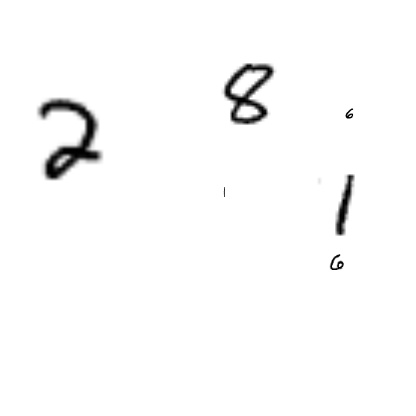 2 8 6
1 1
6